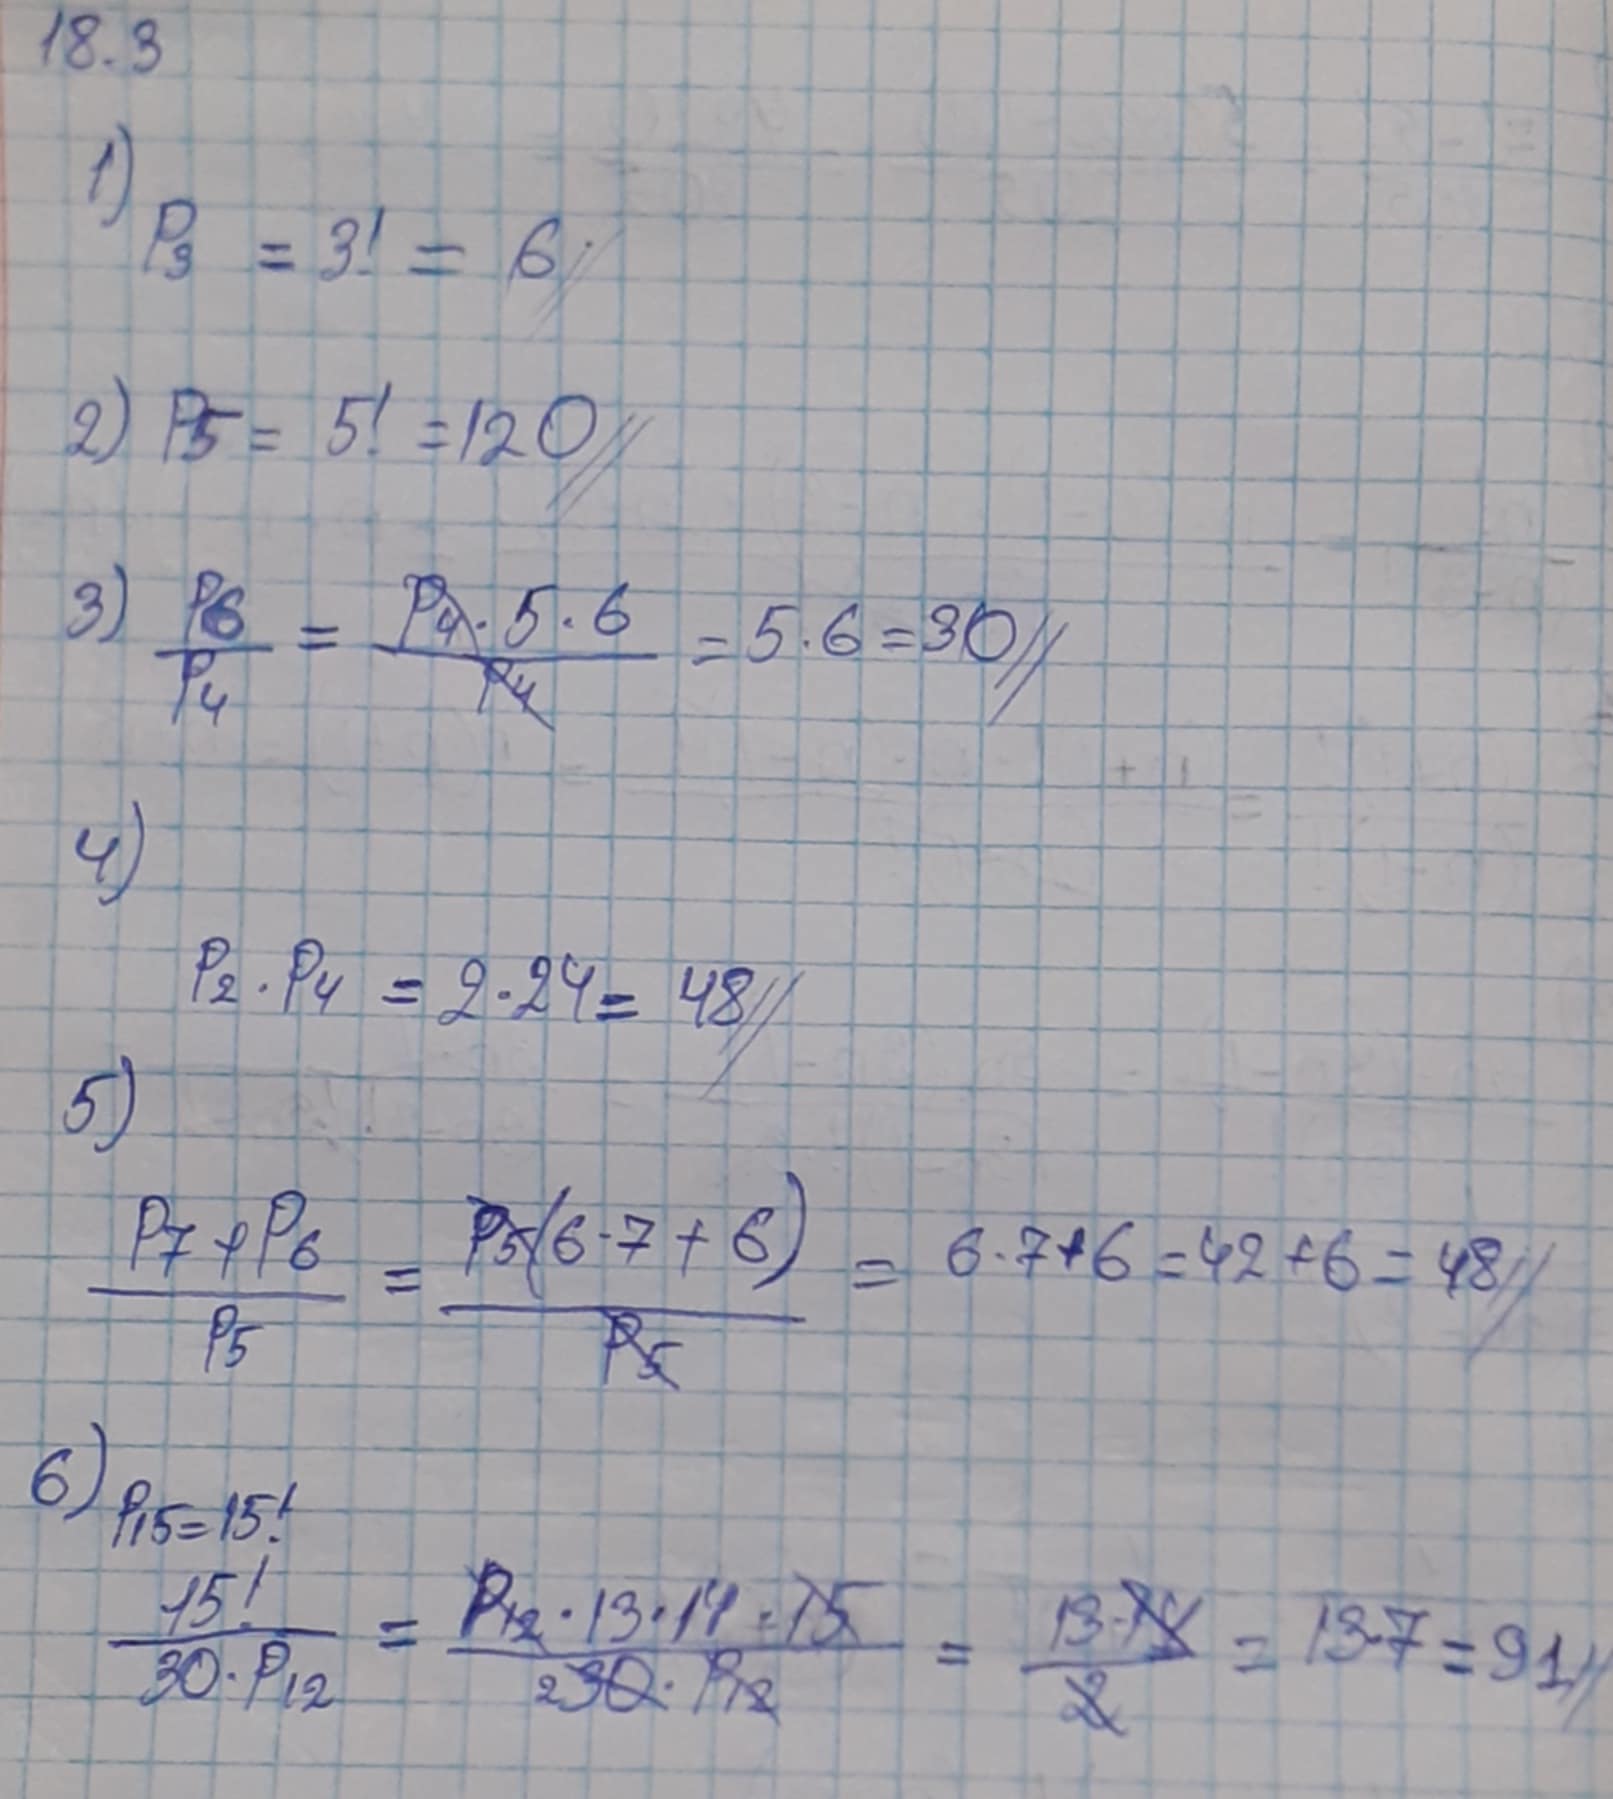 18.3
1)
P3 = 3! = 6
2) P5 = 5! = 120
3) P6/P4 = P4·5·6/P4 = 5·6 = 30
4)
P2·P4 = 2·24 = 48
5)
P7+P6/P5 = P5(6·7+6)/P5 = 6·7+6 = 42+6 = 48
6) P15=15!
15!/30·P12 = P12·13·14·15/2 30·P12 = 13·14/2 = 13·7 = 91